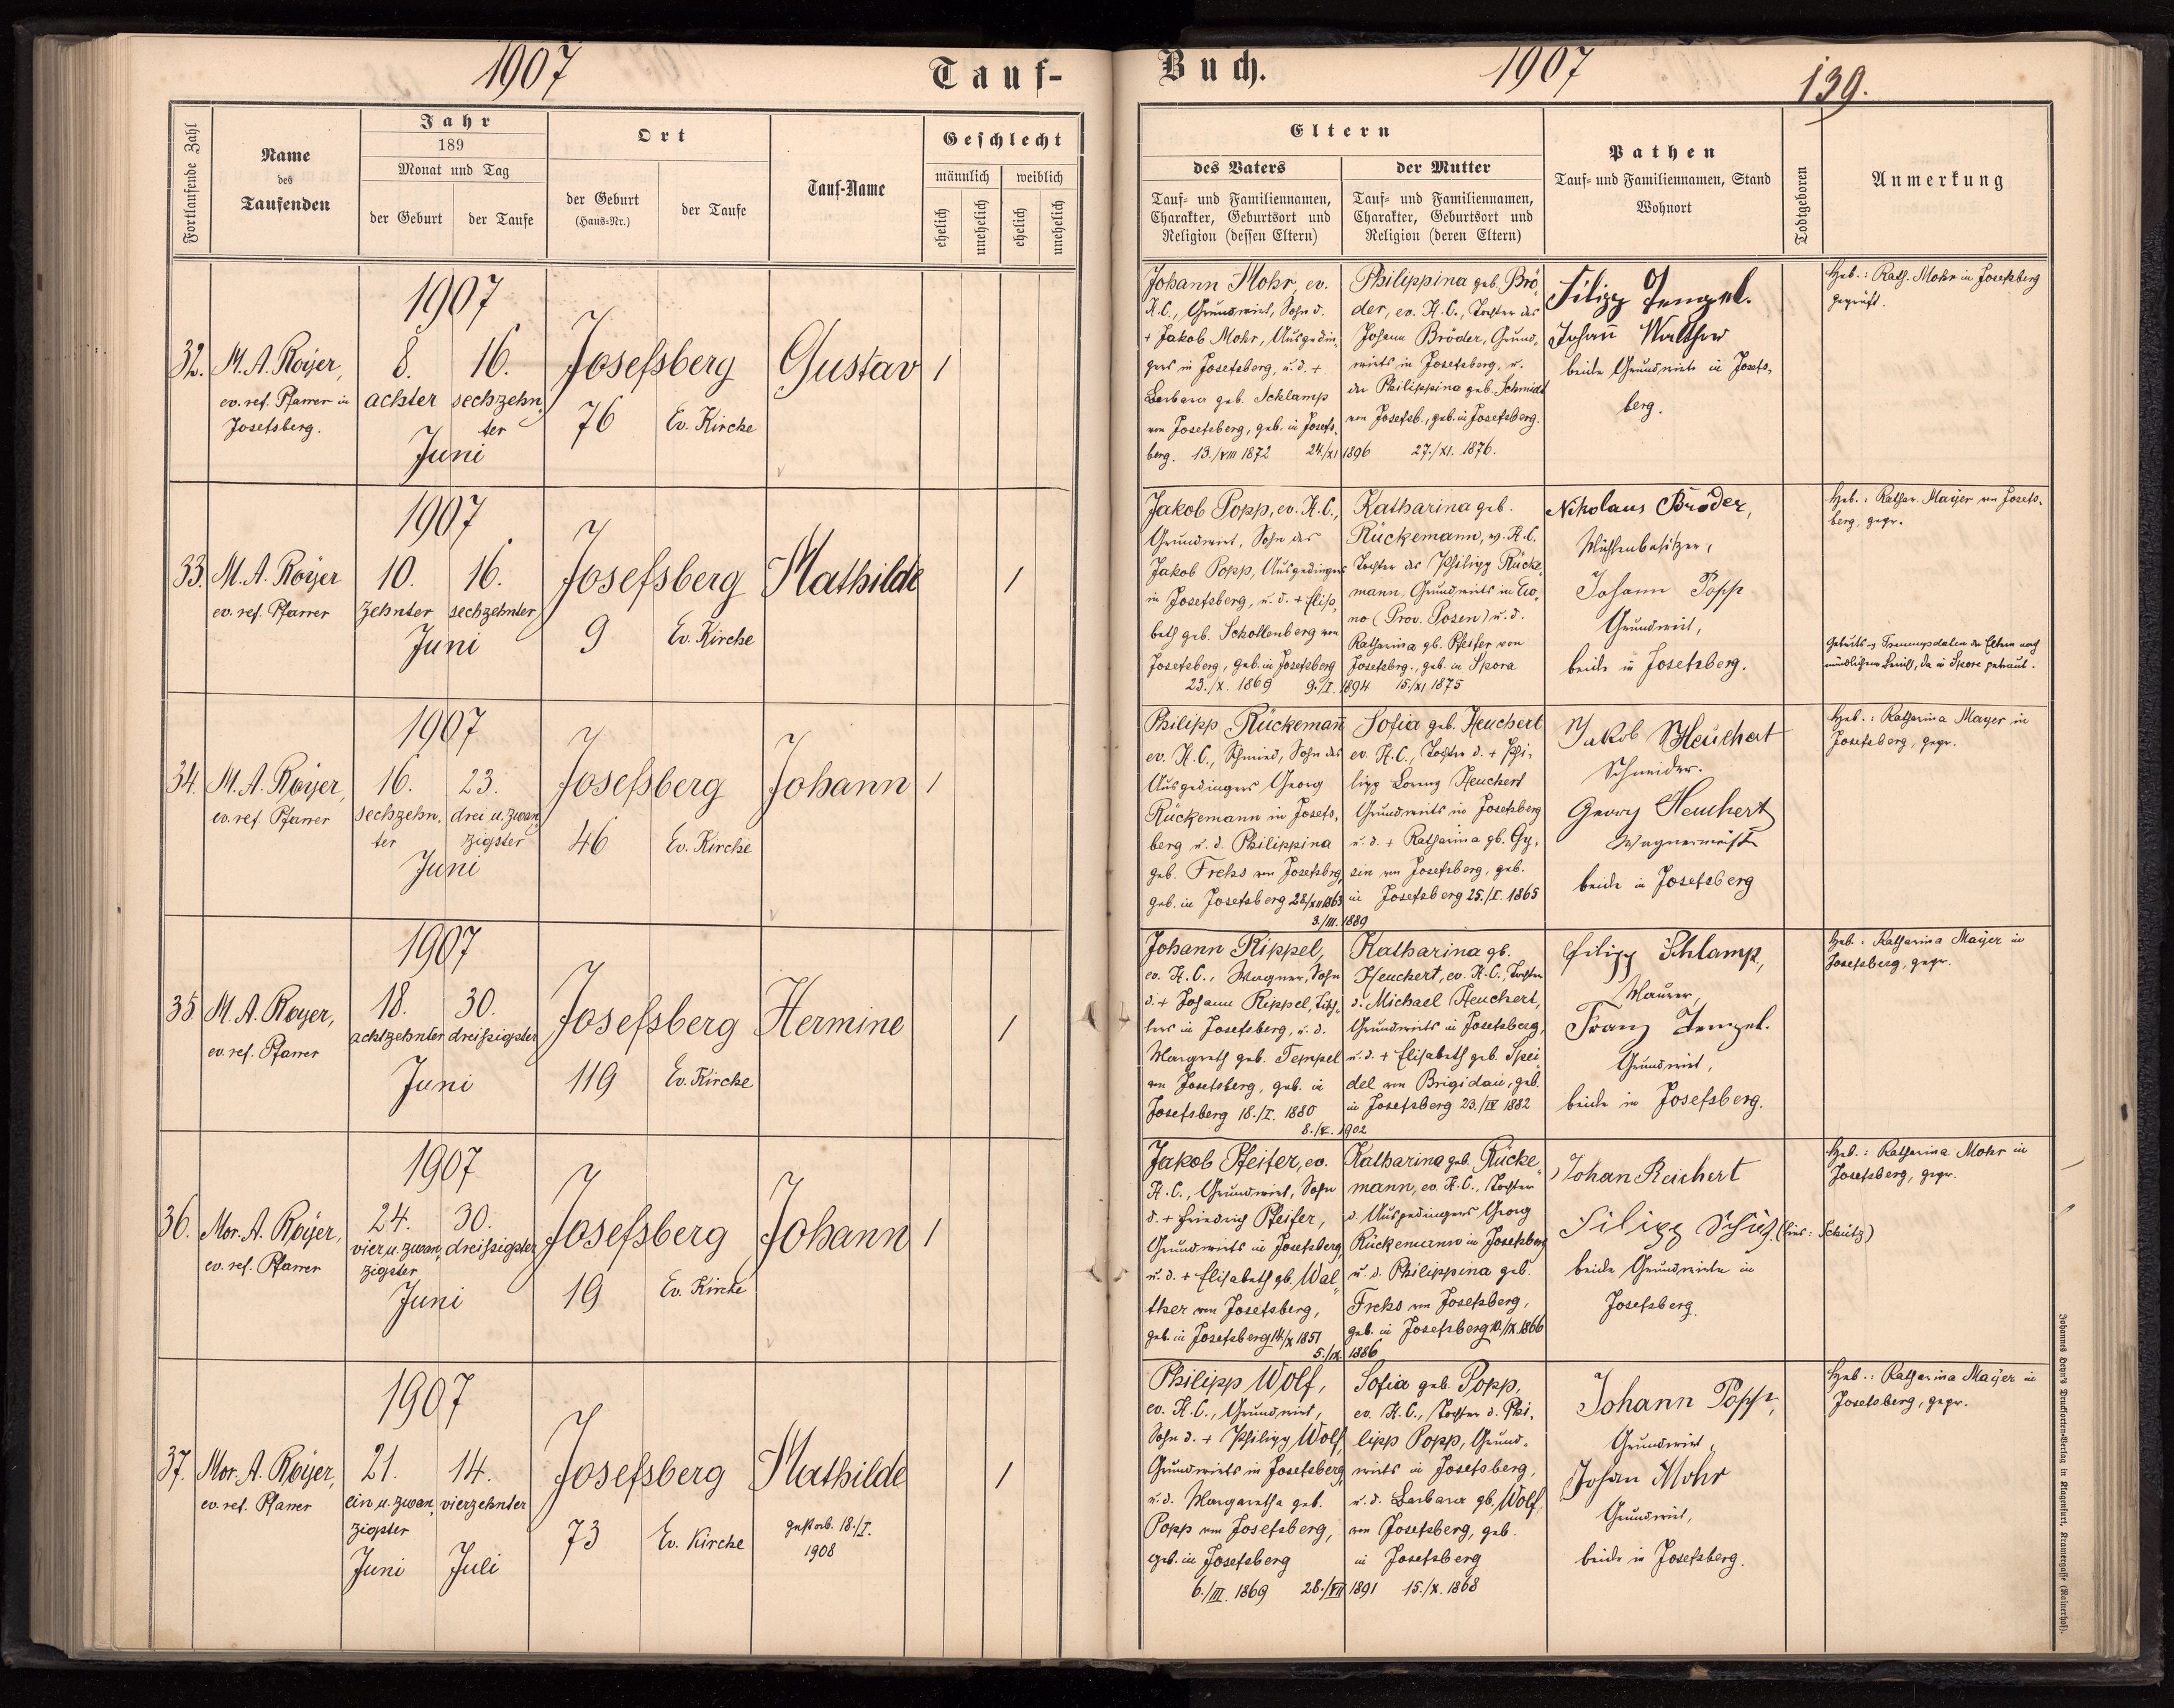 1907
Tauf-
Fortlaufende Zahl
Name
des
Taufenden
Jahr
189
Monat und Tag
der Geburt
der Taufe
Ort
der Geburt
(Haus-Nr.)
der Taufe
Tauf-Name
Geschlecht
männlich
weiblich
ehelich
unehelich
ehelich
unehelich
32.
M. A. Royer,
ev. ref. Pfarrer in
Josefsberg.
1907
8.
16.
achter
sechzehn
ter
Juni
Josefsberg
76
Ev. Kirche
Gustav
1
33.
M. A. Royer
ev. ref. Pfarrer
1907
10.
16.
zehnter
sechzehnter
Juni
Josefsberg
9
Ev. Kirche
Mathilde
1
34.
M. A. Royer,
ev. ref. Pfarrer
1907
16.
23.
sechzehn,
drei u. zwan,
ter
zigster
Juni
Josefsberg
46
Ev. Kirche
Johann
1
35
M. A. Royer,
ev. ref. Pfarrer
1907
18.
30.
achtzehnter
dreißigster
Juni
Josefsberg
119
Ev. Kirche
Hermine
1
36.
Mor. A. Royer,
ev. ref. Pfarrer
1907
24.
30.
vier u. zwan,
dreißigster
zigster
Juni
Josefsberg
19
Ev. Kirche
Johann
1
37.
Mor. A. Royer,
ev. ref. Pfarrer
1907
21.
14.
ein u. zwan,
vierzehnter
zigster
Juni
Juli
Josefsberg
73
Ev. Kirche
Mathilde
gestorb. 18./I.
1908
1
Buch.
1907
139.
Eltern
des Vaters
Tauf- und Familiennamen,
Charakter, Geburtsort und
Religion (dessen Eltern)
der Mutter
Tauf- und Familiennamen,
Charakter, Geburtsort und
Religion (deren Eltern)
Pathen
Tauf- und Familiennamen, Stand
Wohnort
Todtgeboren
Anmerkung
Johann Mohr, ev.
H. C., Grundwirt, Sohn d.
+ Jakob Mohr, Ausgedin,
gers in Josefsberg, u. d. +
Barbara geb. Schlamp
von Josefsberg, geb. in Josefs,
berg. 13./VIII 1872 24./XI 1896
Philippina geb. Brö
der, ev. H. C., Tochter des
Johann Bröder, Grund,
wirts in Josefsberg, u.
der Philippina geb. Schmidt
von Josefsb., geb. in Josefsberg.
27./XI. 1876.
Filipp Tempel.
Johann Walther
beide Grundwirte in Josefs,
berg.
Heb.: Kath. Mohr in Josefsberg
geprüft.
Jakob Popp, ev. H. C.,
Grundwirt, Sohn des
Jakob Popp, Ausgedingers
in Josefsberg, u. d. + Elisa,
beth geb. Schollenberg von
Josefsberg, geb. in Josefsberg
23./X. 1869 9./I. 1894
Katharina geb.
Rückemann, ev. H. C.
Tochter des Philipp Rücke
mann, Grundwirts in
no (Prov. Posen) u. d.
Katharina gb. Pfeifer von
Josefsbrg., geb. in Skora
15./XI 1875
Nikolaus Bröder,
Mühlenbesitzer,
Johann Popp
Grundwirt,
beide in Josefsberg.
Heb.: Kathar. Mayer von Josefs,
berg, gepr.
Geburts u Trauungsdaten der Eltern nach
mündlichem Bericht, da in Skora getraut.
Philipp Rückemann
ev. H. C., Schmied, Sohn des
Ausgedingers Georg
Rückemann in Josefs,
berg u. d. Philippina
geb. Frekss von Josefsbrg,
geb. in Josefsberg 28./XII 1863
3./III. 1889
Sofia geb. Heuchert
ev. H. C., Tochter d. + Phi,
lipp Lorenz Heuchert
Grundwirts in Josefsberg
u. d. + Katharina gb. Gy,
sin von Josefsberg, geb.
in Josefsberg 25./I. 1865
Jakob Heuchert
Schneider.
Georg Heuchert
Wagnermeister
beide in Josefsberg
Heb.: Katharina Mayer in
Josefsberg, gepr.
Johann Rippel,
ev. H. C., Wagner, Sohn
d. + Johann Rippel, Tisch,
lers in Josefsberg, u. d.
Margareth geb. Tempel
von Josefsberg, geb. in
Josefsberg 18./I. 1880
8./V. 1902
Katharina gb.
Heuchert, ev. H. C., Tochter
d. Michael Heuchert,
Grundwirts in Josefsberg,
u. d. + Elisabeth geb. Spei
del von Brigidau, geb.
in Josefsberg 23./IV 1882
Filipp Schlamp,
Maurer,
Franz Tempel.
Grundwirt,
beide in Josefsberg.
Heb.: Katharina Mayer in
Josefsberg, gepr.
Jakob Pfeifer, ev.
H. C., Grundwirt, Sohn
d. + Friedrich Pfeifer,
Grundwirts in Josefsberg,
u. d. + Elisabeth gb. Wal
ther von Josefsberg,
geb. in Josefsberg 14./X 1851
5./IX. 1886
Katharina geb. Rücke,
mann, ev. H. C., Tochter
d. Ausgedingers Georg
Rückemann in Josefsberg
u. d. Philippina geb.
Frekss von Josefsberg,
geb. in Josefsberg 10./IX. 1866
Johan Reichert
Filipp Schüz. (lies: Schütz)
beide Grundwirte in
Josefsberg.
Heb.: Katharina Mohr in
Josefsberg, gepr.
Philipp Wolf,
ev. H. C., Grundwirt,
Sohn d. + Philipp Wolf,
Grundwirts in Josefsberg,
u. d. Margaretha geb.
Popp von Josefsberg,
geb. in Josefsberg
6./III. 1869 28./VII 1891
Sofia geb. Popp,
ev. H. C., Tochter d. Phi,
lipp Popp, Grund,
wirts in Josefsberg,
u. d. Barbara gb. Wolf,
von Josefsberg, geb.
in Josefsberg
15./X. 1868
Johann Popp,
Grundwirt,
Johan Mohr
Grundwirt,
beide in Josefsberg.
Heb.: Katharina Mayer in
Josefsberg, gepr.
Johannes Heyn's Drucksorten-Verlag in Klagenfurt, Kramergasse (Rainerhof).